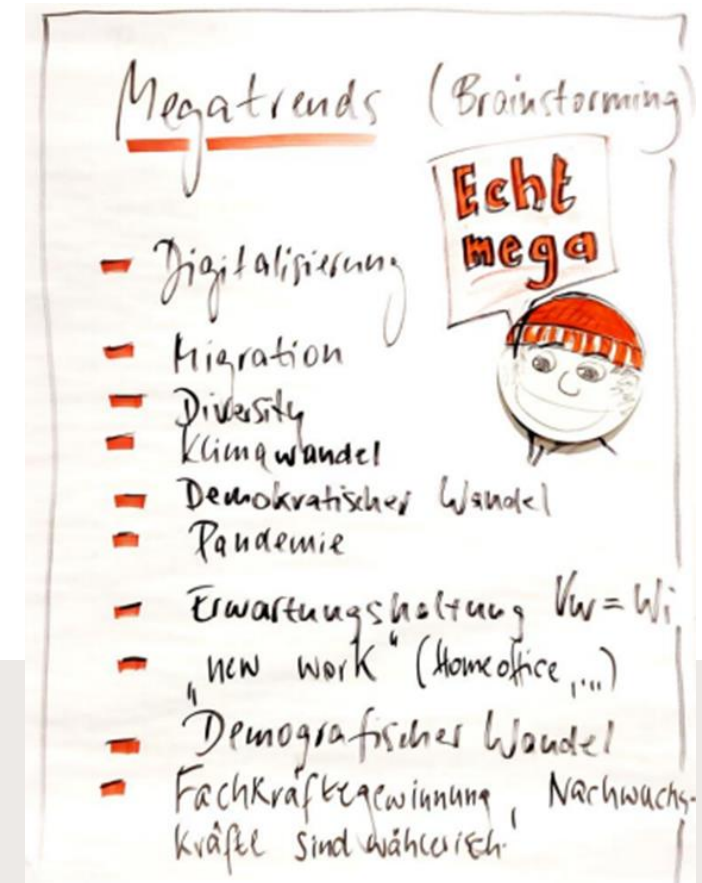 Megatrends (Brainstorming)
Echt
mega
- Digitalisierung
- Migration
- Diversity
- Klimawandel
- Demokratischer Wandel
- Pandemie
- Erwartungshaltung Vw = Wi
- "new work" (Homeoffice,...)
- Demografischer Wandel
- Fachkräftegewinnung, Nachwuchs-
kräfte sind wählerisch